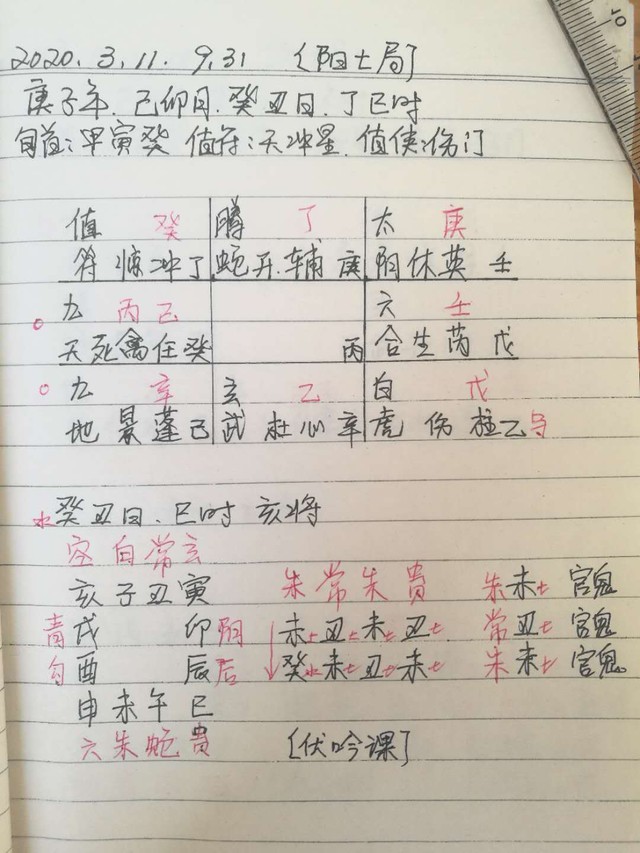 2020.3.11. 9.31 〔阳七局〕
庚子年.己卯月.癸丑日.丁巳时
旬首:甲寅癸 值符:天冲星.值使:伤门
值 癸 腾 丁 太 庚
符 惊冲丁 蛇开.辅 庚 阴休英 壬
九 丙己 六 壬
天死禽任癸 丙 合生芮 戊
九 辛 玄 乙 白 戊
地 景 蓬己 武 杜心辛 虎 伤 柱乙马
水癸丑日.巳时 亥将
空白常玄
亥子丑寅 朱常朱贵 朱未土 官鬼
青戌 卯阴 未土丑土未土丑土 常丑土 官鬼
勾酉 辰后 癸水未土丑土未土 朱未土 官鬼
申未午巳
六朱蛇贵 〔伏吟课〕